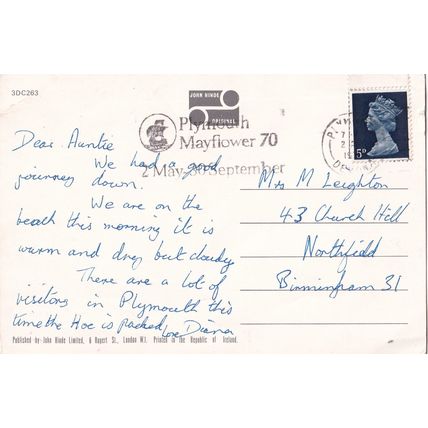 3DC263
JOHN HINDE
ORIGINAL
Plymouth
Mayflower 70
2 May-30 September
5D
Dear Auntie
We had a good
journey down.
We are on the
beach this morning it is
warm and dry but cloudy.
There are a lot of
visitors in Plymouth this
time the Hoe is packed love Diana
Mrs M Leighton
43 Church Hill
Northfield
Birmingham 31
Published by John Hinde Limited, 6 Rupert St., London W.1. Printed in the Republic of Ireland.